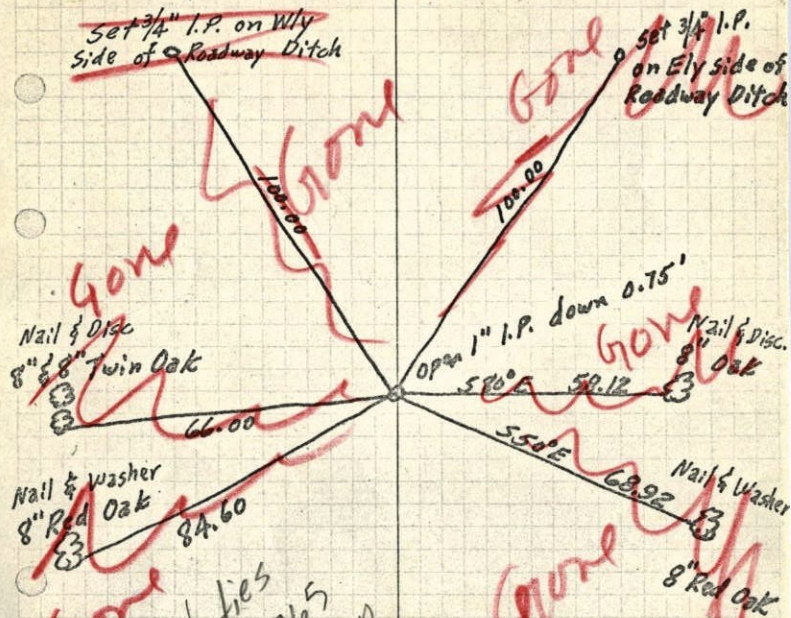 Set 3/4" I.P. on Wly
Side of Roadway Ditch
Set 3/4" I.P.
on Ely side of
Roadway Ditch
Gone
Gone
100.00
100.00
Gone
Open 1" I.P. down 0.75'
Gone
Nail & Disc
8" & 8" Twin Oak
66.00
Nail & Disc.
8" Oak
S80°E 59.12
S50°E
68.92
Nail & Washer
8" Red Oak
84.60
Nail & Washer
8" Red Oak
Gone
ties